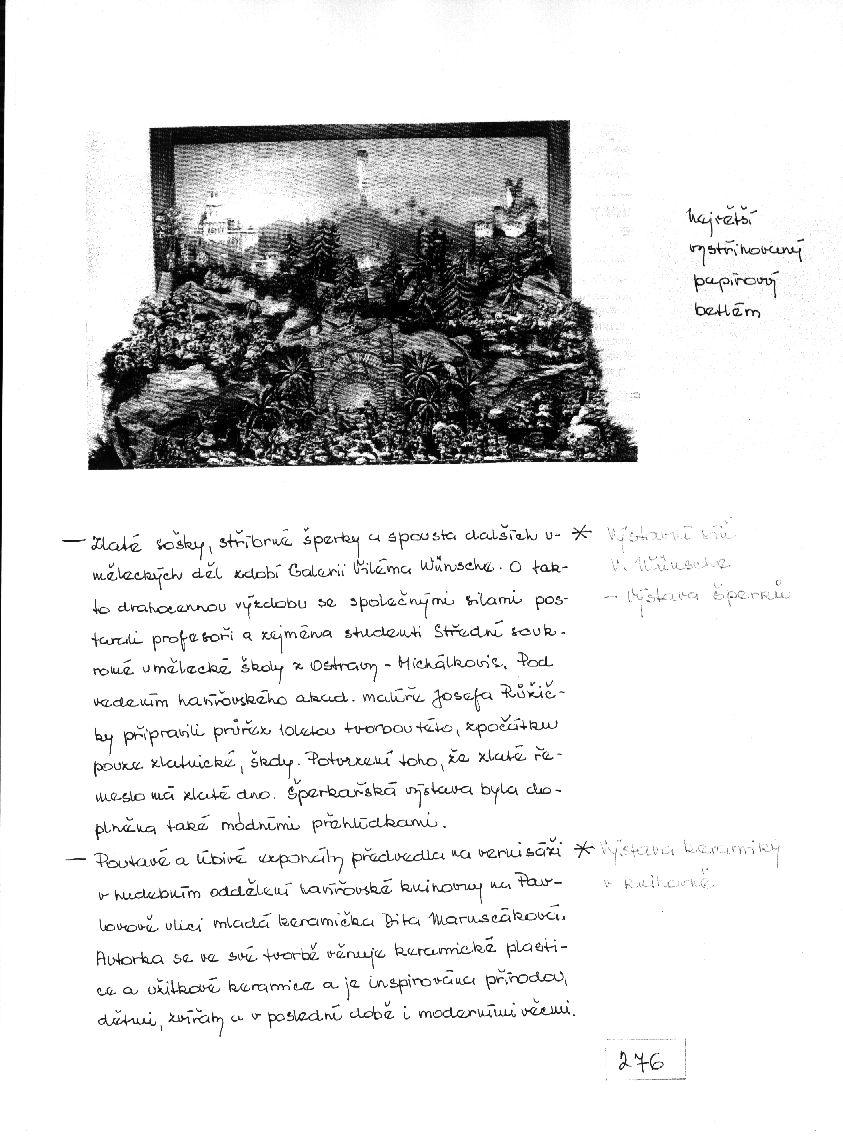 největší
vystřihovaný
papírový
betlém
— Zlaté sošky, stříbrné šperky a spousta dalších u- * Výstavní síň
měleckých děl zdobí Galerii Viléma Wünsche. O tak- V. Wünsche
to drahocennou výzdobu se společnými silami pos- – Výstava šperků
tarali profesoři a zejména studenti Střední souk-
romé umělecké školy z Ostravy - Michálkovic. Pod
vedením havířovského akad. malíře Josefa Růžič-
ky připravili průřez 10letou tvorbou této, zpočátku
pouze zlatnické, školy. Potvrzení toho, že zlaté ře-
meslo má zlaté dno. Šperkařská výstava byla do-
plněna také módními přehlídkami.
— Poutavé a líbivé exponáty předvedla na vernisáži * Výstava keramiky
v hudebním oddělení havířovské knihovny na Pav- v knihovně
lovově ulici mladá keramička Dita Maruscáková.
Autorka se ve své tvorbě věnuje keramické plasti-
ce a užitkové keramice a je inspirována přírodou,
dětmi, zvířaty a v poslední době i moderními věcmi.
276